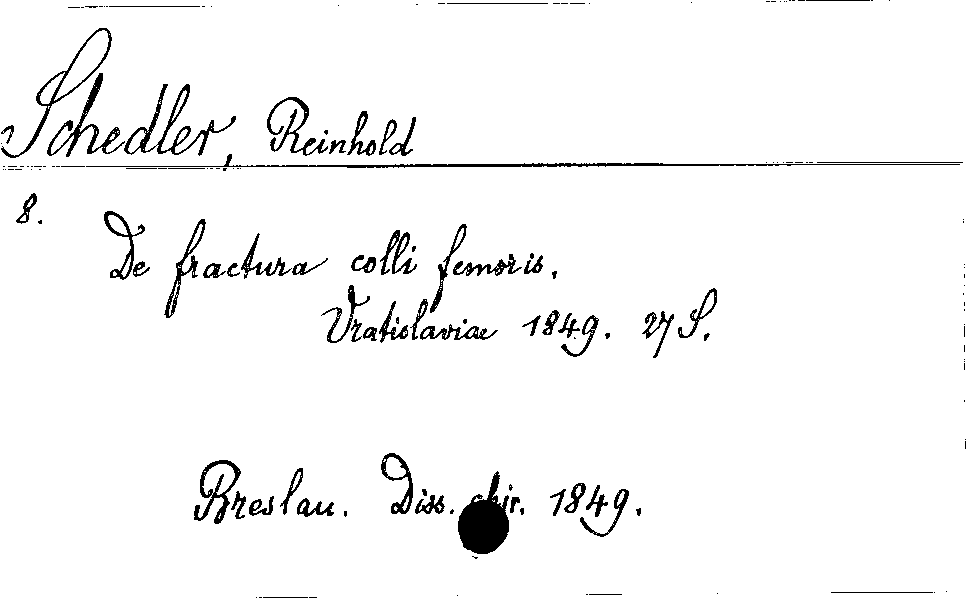 Schedler, Reinhold
8.
De fractura colli femoris.
Vratislaviae 1849. 27 S.
Breslau. Diss. chir. 1849.